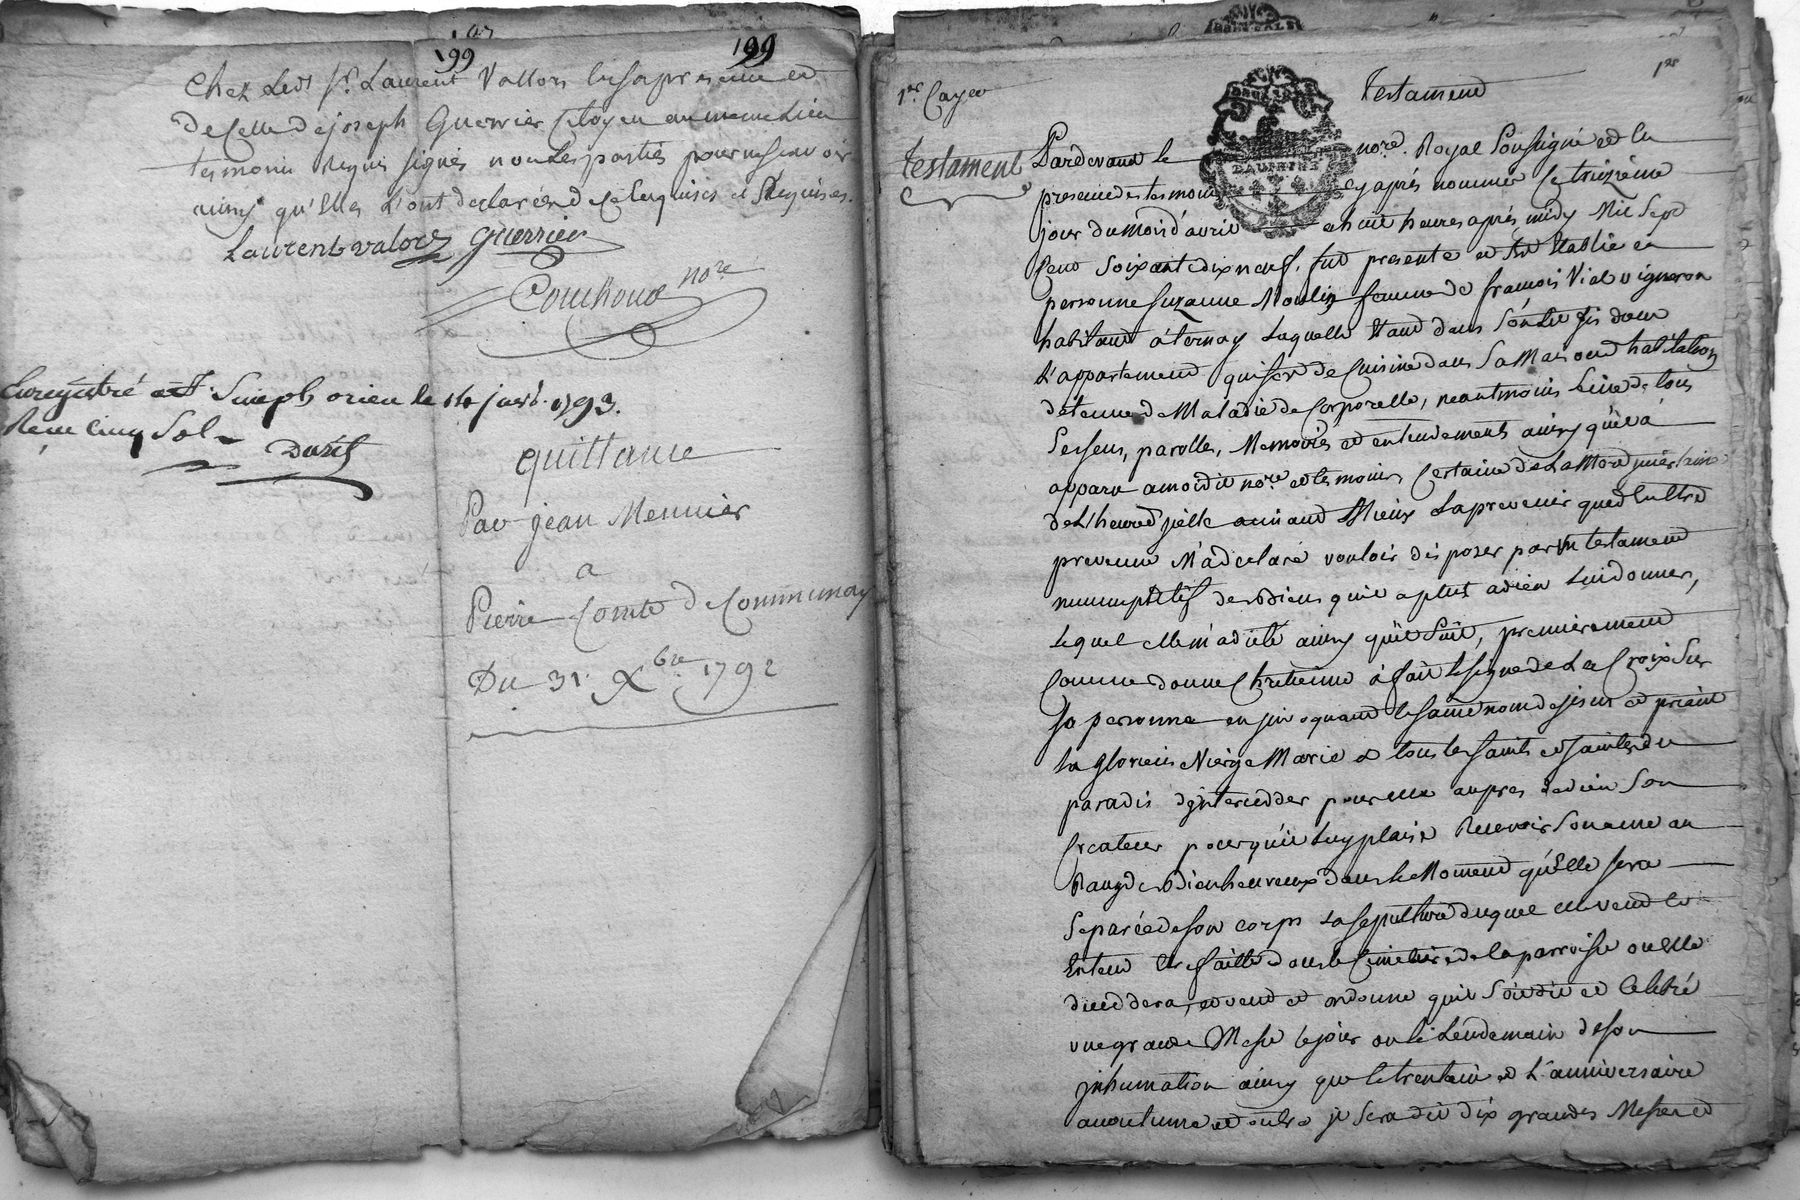 199
199
Chez Led. Sr. Laurent Vallors en sa presence et
de Celle de joseph Guerrier Citoyen au meme Lieu
temoin requis signés non Les parties pour ne sçavoir
ainsy qu'Elles L'ont declaré de ce Enquises et Requises.
Laurent valors guerrier
Couchoud nore
Enregistré a St. Simphorien le 14 janv. 1793.
Reçu cinq Sols
quittance
Par jean Meunier
a
Pierre Comte de Communay
Du 31. Xbre. 1792
1er. Cayer
Testament
1er
DAUPHINÉ
Testament
Pardevant le nore. Royal Soussigné et en
presence des temoins cy après nommés Ce treizieme
jour du Mois d'avril a huit heures après midy Mil Sept
Cent Soixante dix neuf. fut presente et Est Etablie en
personne Suzanne Moulin femme de françois Vial vigneron
habitant à ternay Laquelle Etant dans Son Lit gis dans
L'appartement qui sert de Cuisine dans Sa Maison d'habitation
detenue de Maladie de Corporelle, neantmoins Saine de tous
Ses sens, parolle, Memoire et entendement ainsy qu'il a
apparu a moidit nore et temoins, Certaine de La Mort incertaine
de L'heure d'jcelle aimant Mieux La prevenir que d'en Etre
prevenue M'a declaré vouloir disposer par un testament
nuncupatif des Biens qu'il a plut a dieu Lui donner,
Lequel elle m'a dicté ainsy qu'il Suit, premierement
Comme bonne Chretienne à fait le signe de La Croix Sur
Sa personne en jnvoquant le saint nom de jesus et priant
La glorieuse Vierge Marie et tous les saints et saintes du
paradis d'jnterceder pour elle aupres de dieu Son
Createur pour qu'il Luy plaise Recevoir Son ame au
Rang des Bienheureux dans le Moment qu'Elle sera
Separée de son corps La sepulture duquel elle veut et
Entend Etre faitte dans le Cimetiere de la parroisse ou Elle
decedera, et veut et ordonne qu'il Soit dit et Celebré
une grande Messe le jour ou le Lendemain de son
jnhumation ainsy que le trentain et L'anniversaire
accoutumé et outre je Sera dit dix grandes Messes et